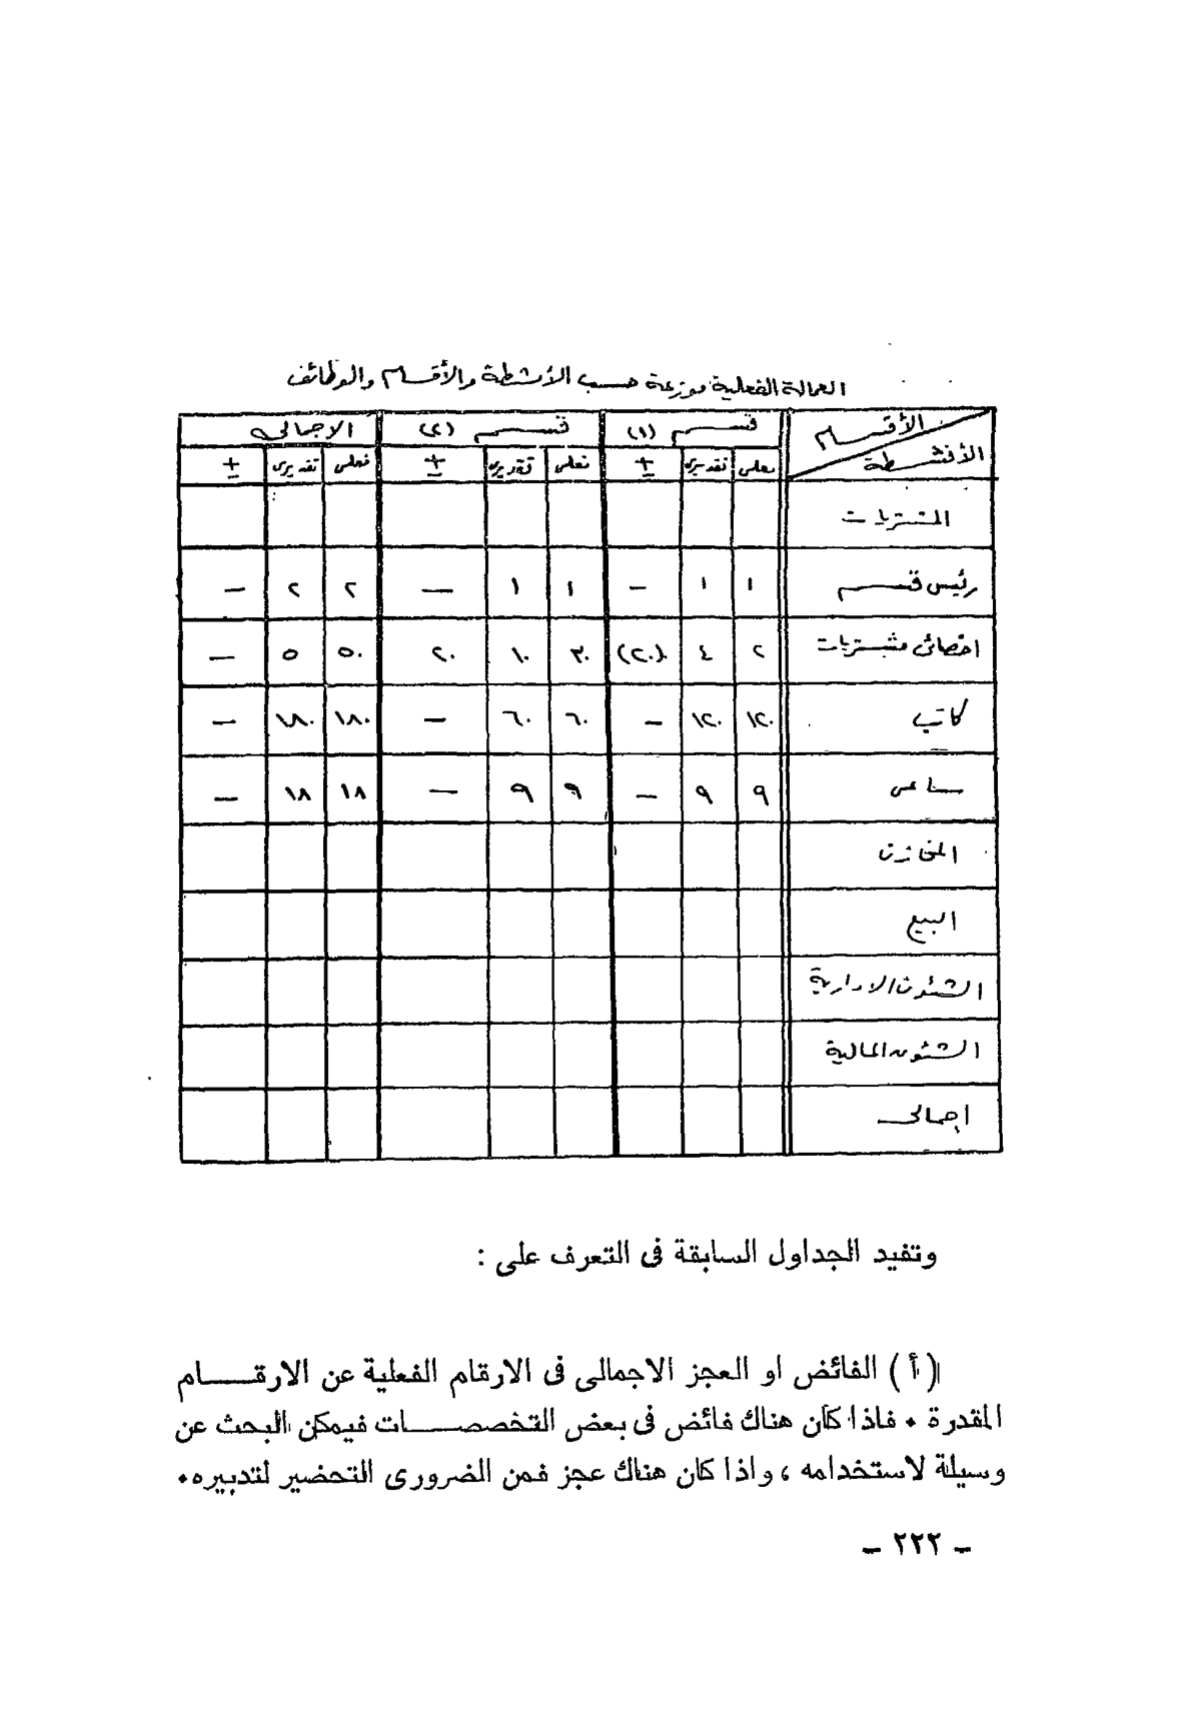 العمالة الفعلية موزعة حسب الأنشطة والأقسام والوظائف
الأقسام قسم (١) قسم (٢) الاجمالى
الأنشطة فعلى تقديرى ± فعلى تقديرى ± فعلى تقديرى ±
المشتريات
رئيس قسم ١ ١ — ١ ١ — ٢ ٢ —
اخصائى مشتريات ٢ ٤ (٢٠) ٣٠ ١٠ ٢٠ ٥٠ ٥ —
كاتب ١٢٠ ١٢٠ — ٦٠ ٦٠ — ١٨٠ ١٨٠ —
ساعى ٩ ٩ — ٩ ٩ — ١٨ ١٨ —
المخازن
البيع
الشئون الادارية
الشئون المالية
إجمالى
وتفيد الجداول السابقة فى التعرف على :
(أ) الفائض او العجز الاجمالى فى الارقام الفعلية عن الارقـــــام
المقدرة ٠ فاذا كان هناك فائض فى بعض التخصصـــــات فيمكن البحث عن
وسيلة لاستخدامه ، واذا كان هناك عجز فمن الضرورى التحضير لتدبيره٠
– ٢٢٢ –